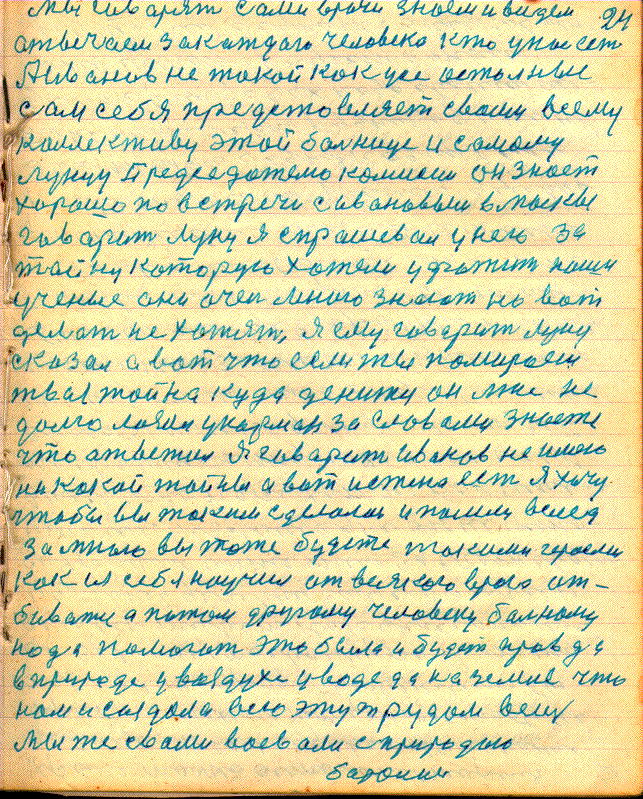 24
мы говарят сами врачи знаем и видем
отвечаем за каждаго человека кто упасет
А Иванов не такой как усе остальные
сам себя представляет своим всему
коллективу этой балнице и самому
Луцу Председателю комисии он знает
хорошо по встречи с ивановым в москве
говарит Луцу я спрашевал у него за
тайну которую хатели уфатит наши
ученые они очен много знают но вот
делат не хатят, я ему говарит Луцу
сказал а вот что если ты помираеш
твая тайна куда денится он мне не
долго лазил у карман за словами знаете
что атветил я говарит иванов не имею
никокой тайны а вот истена ест я хачу
чтобы вы таким сделалы и пошли вслед
за мною вы тоже будете такими героями
как и я себя научил от всякого врага от-
бивать а потом другому человеку балному
нада помогат это была и будет правда
в природе у воздухе у воде да на земле что
нам и саздала всю эту трудом вещ
мы же с вами воевали с природаю